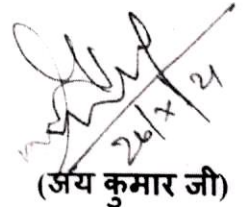 26/X/21
(अंय कुमार जी)